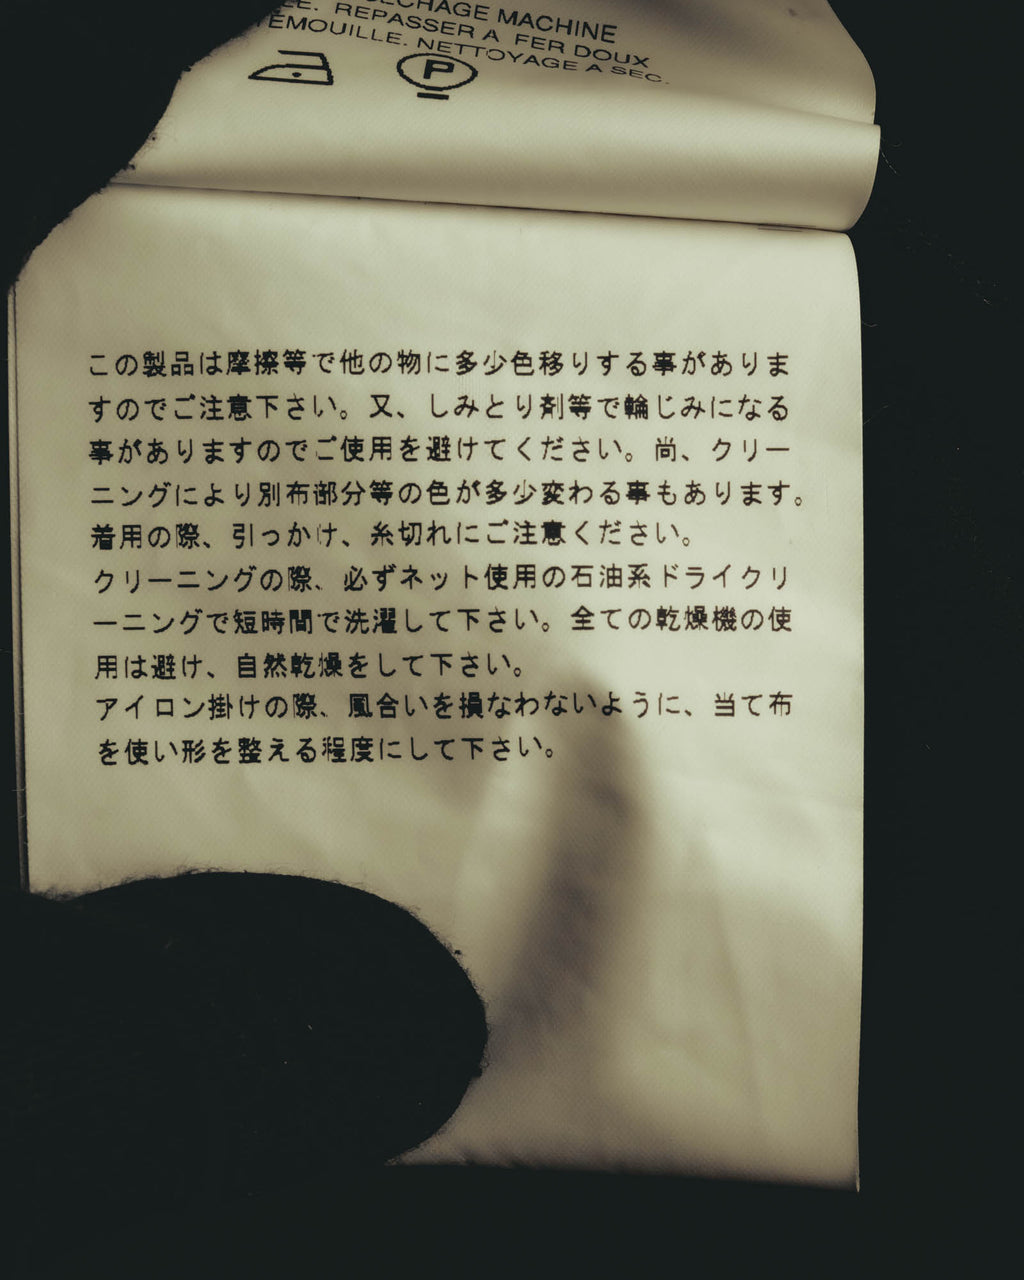 MACHINE
REPASSER A FER DOUX
NETTOYAGE A SEC.
P
この製品は摩擦等で他の物に多少色移りする事がありま
すのでご注意下さい。又、しみとり剤等で輪じみになる
事がありますのでご使用を避けてください。尚、クリー
ニングにより別布部分等の色が多少変わる事もあります。
着用の際、引っかけ、糸切れにご注意ください。
クリーニングの際、必ずネット使用の石油系ドライクリ
ーニングで短時間で洗濯して下さい。全ての乾燥機の使
用は避け、自然乾燥をして下さい。
アイロン掛けの際、風合いを損なわないように、当て布
を使い形を整える程度にして下さい。